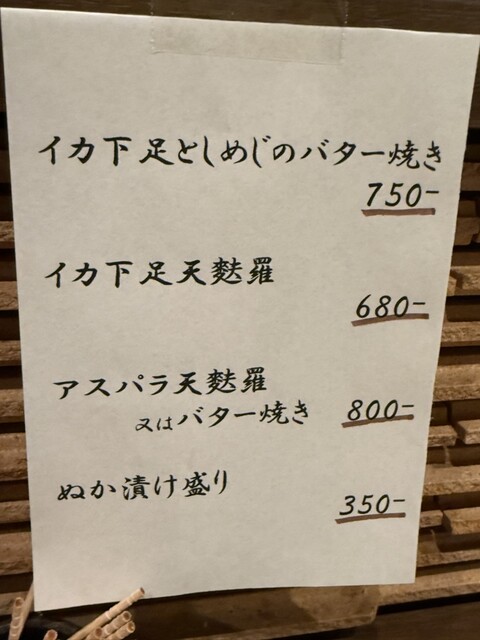 イカ下足としめじのバター焼き
750-
イカ下足天麩羅
680-
アスパラ天麩羅
又はバター焼き 800-
ぬか漬け盛り
350-